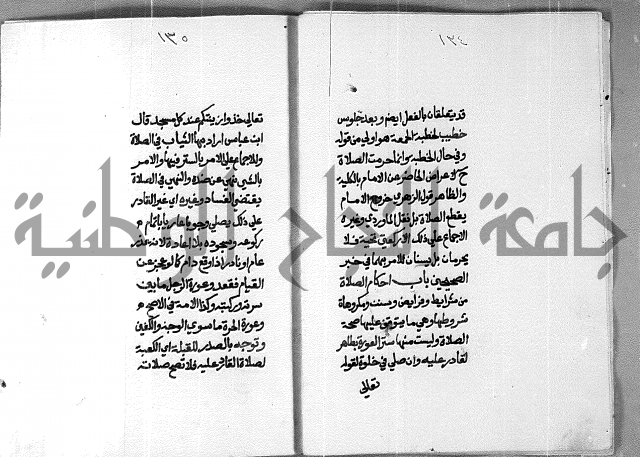 ١٣٤
قد يتعلقان بالفعل ايضا وبعد جلوس
خطيب لخطبة الجمعة هو اولى من قوله
وفي حال الخطبة وانما حرمت الصلاة
ح لاعراض الحاضر عن الامام بالكلية
والظاهر قول الزهري خروج الامام
يقطع الصلاة بل نقل الماوردي وغيره
الاجماع على ذلك الا ركعتي تحية فلا
يحرمان بل يسنان للامر بهما في خبر
الصحيحين باب احكام الصلاة
من شرايط وفرايض وسنن ومكروهات
شروطها وهي ما يتوقف عليها صحة
الصلاة وليست منها ستر العورة بطاهر
لقادر عليه وان صلى في خلوة لقوله
تعالى
١٣٥
تعالى خذوا زينتكم عند كل مسجد قال
ابن عباس المراد بها الثياب في الصلاة
وللاجماع على الامر بالستر فيها والامر
بالشي نهي عن ضده والنهي في الصلاة
يقتضي الفساد وغيره اي غير القادر
على ذلك يصلي وجوبا عاريا باتمام
ركوعه وسجوده بلا اعادة لانه عذر
عام او نادر اذا وقع دام كالعجز عن
القيام فقعد وعورة الرجل ما بين
سرته وركبته وكذا الامة في الاصح
وعورة الحرة ما سوى الوجه والكفين
وتوجه بالصدر للقبلة اي الكعبة
لصلاة القادر عليه فلا تصح صلاته
جامعة النجاح الوطنية